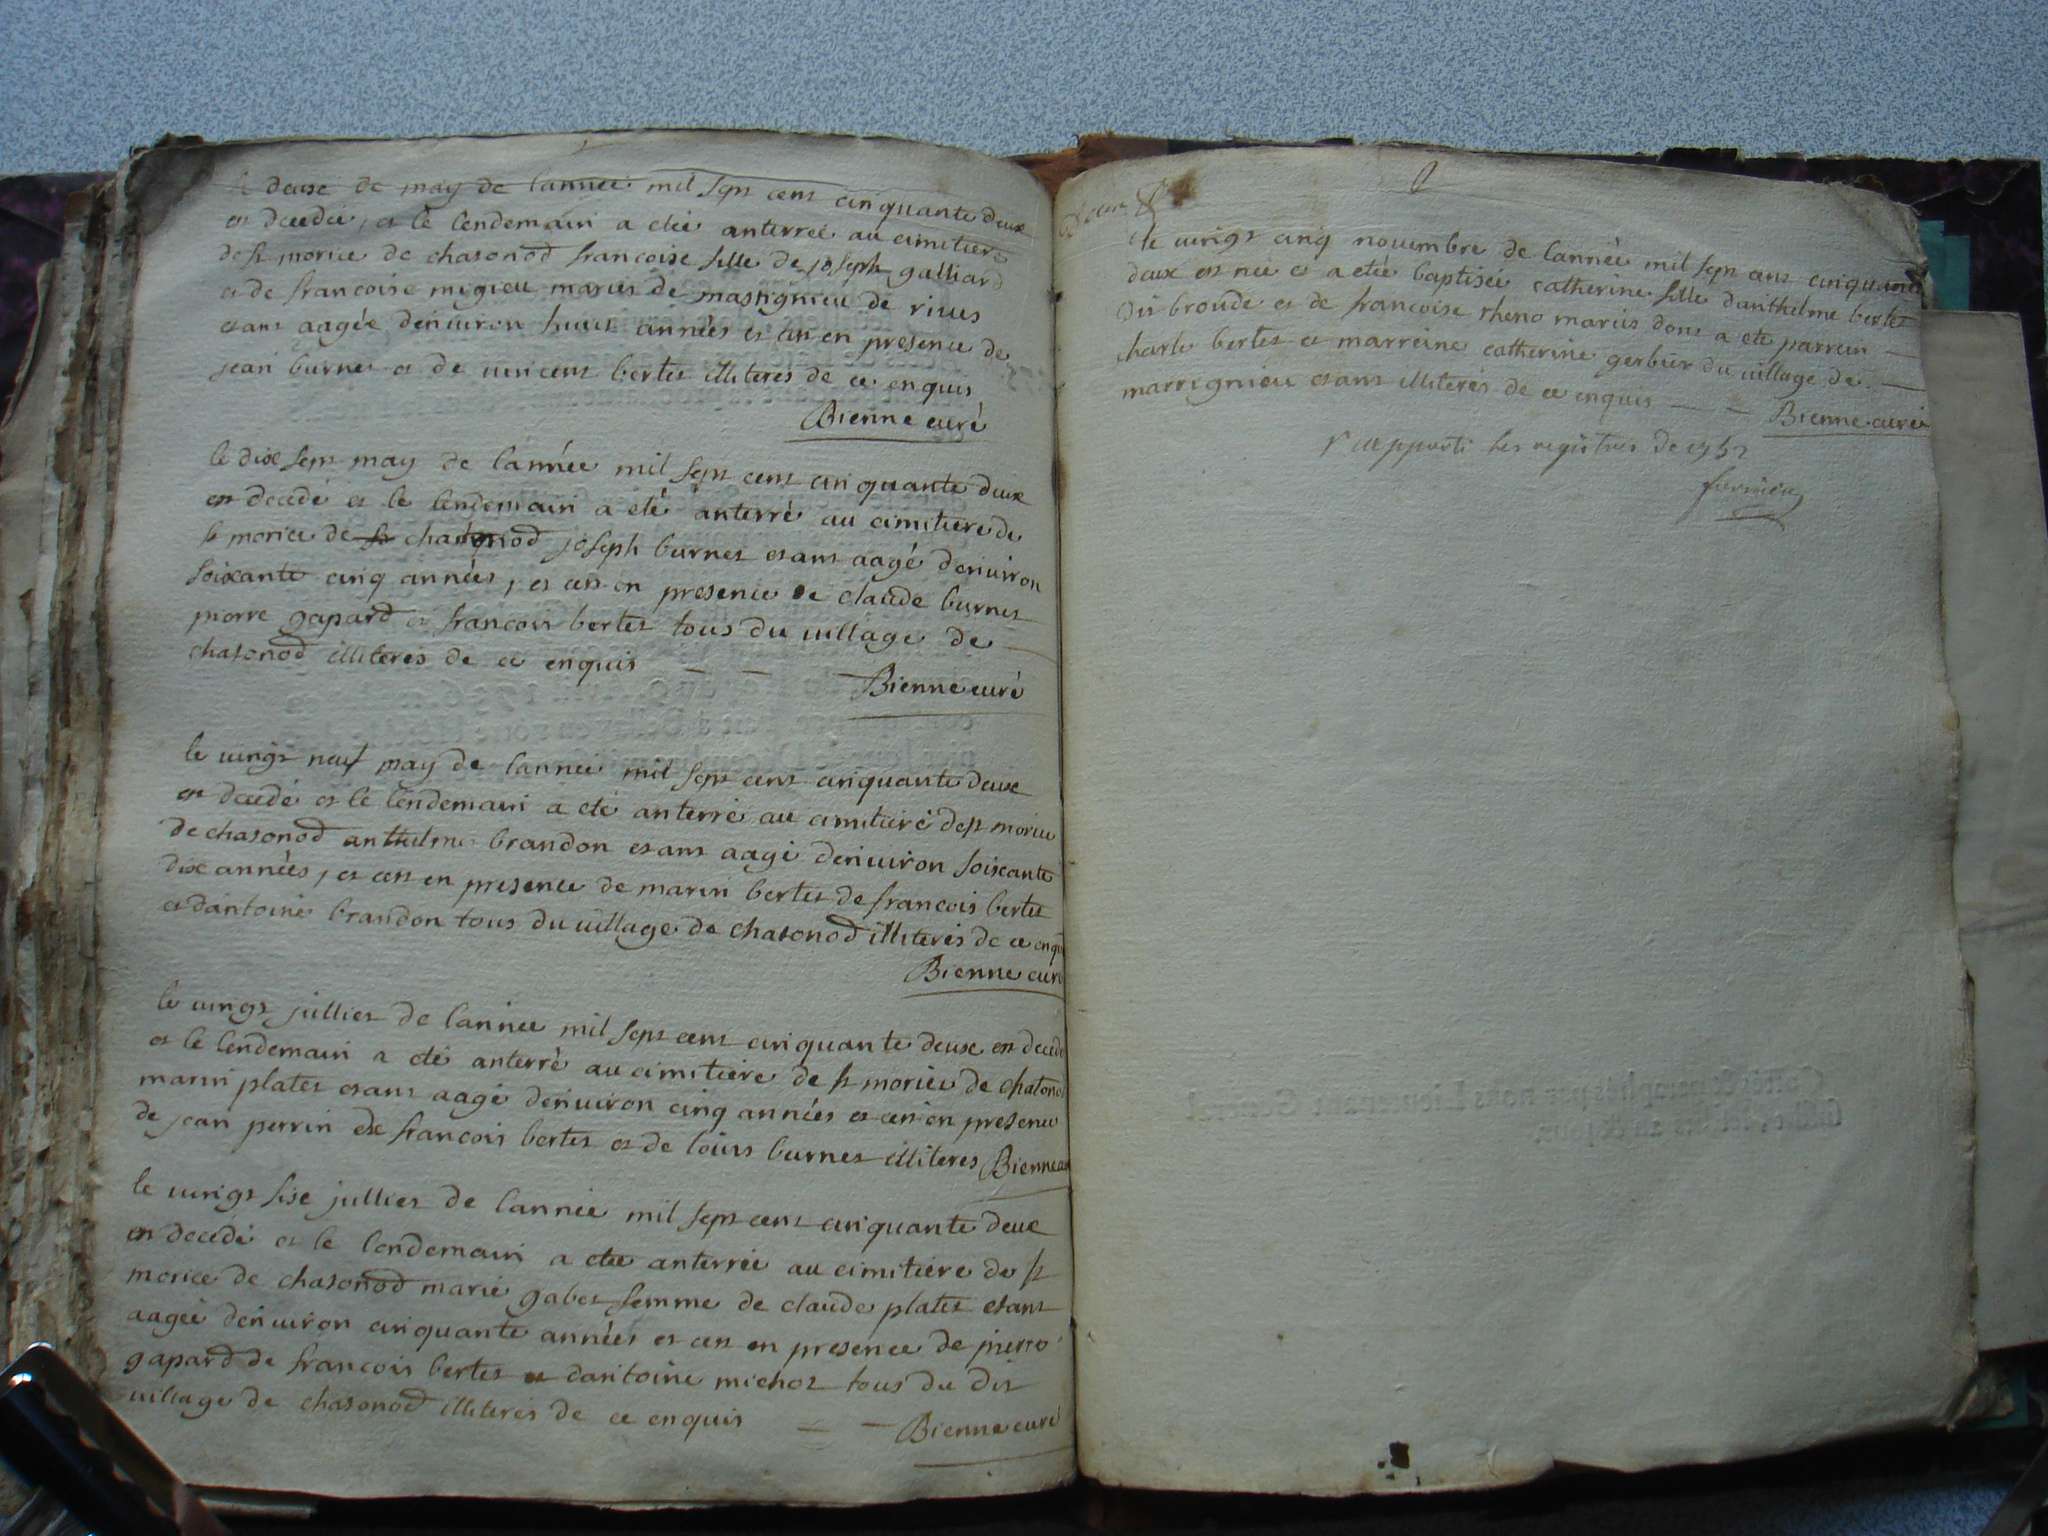 le deuxe de may de lannee mil sept cent cinquante deux
est decedée, et le lendemain a etée anterrée au cimitiere
de st morice de chasonod francoise fille de joseph galliard
et de francoise migieu mariés de massignieu de rives
etant aagée denuiron huit années et ce en presence de
jean burnet et de vincent bertet illiterés de ce enquis
Bienne curé
le dixe sept may de lannée mil sept cent cinquante deux
est decedé et le lendemain a eté anterré au cimitiere de
st morice de chasonod joseph burnet etant aagé denuiron
soixante cinq années, et cest en presence de claude burnet
pierre gapard et francois bertet tous du village de
chasonod illiterés de ce enquis
Bienne curé
le vingt neuf may de lannée mil sept cent cinquante deux
est decedé et le lendemain a eté anterré au cimitiere de st morice
de chasonod anthelme brandon etant aagé denuiron soixante
dix années, et cest en presence de marin bertet de francois bertet
et dantoine brandon tous du village de chasonod illiterés de ce enquis
Bienne curé
le vingt julliet de lannee mil sept cent cinquante deuxe est decedé
et le lendemain a eté anterré au cimitiere de st morice de chasonod
marin platet etant aagé denuiron cinq années et cest en presence
de jean perrin de francois bertet et de louis burnet illiteres Bienne
le vingt sixe julliet de lannée mil sept cent cinquante deux
est decedé et le lendemain a etée anterrée au cimitiere de st
morice de chasonod marie gabet femme de claude platet etant
aagée denuiron cinquante années et cest en presence de pierre
gapard de francois bertet et dantoine michot tous du dit
village de chasonod illiterés de ce enquis
Bienne curé
le vingt cinq nouembre de lannée mil sept cent cinquante
deux est née et a etée baptisée catherine fille danthelme bertet
dit broude et de francoise rheno mariés dont a eté parrein
charle bertet et marreine catherine gerbur du village de
marrignieu etant illiterés de ce enquis
Bienne curé
rapporté les registres de 1752